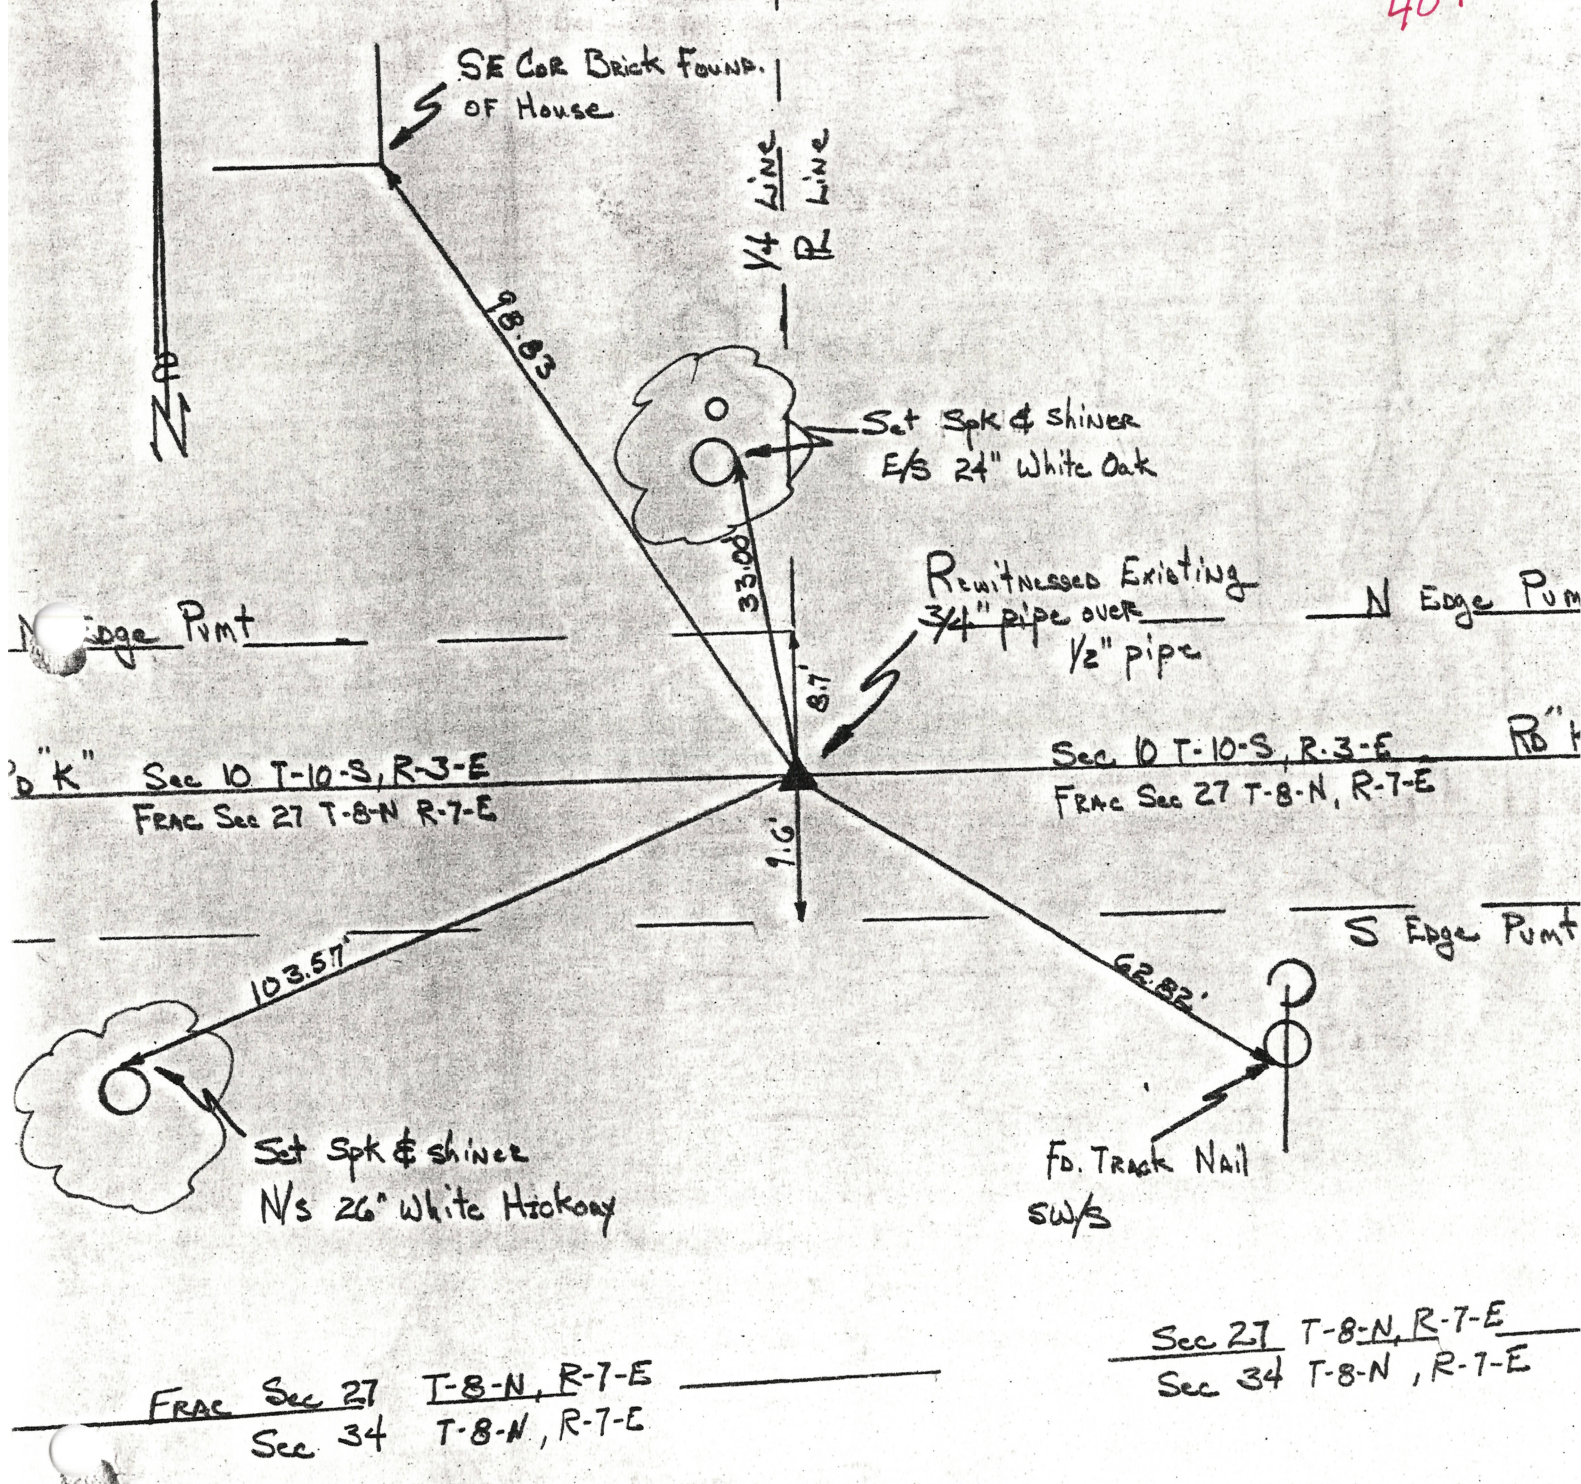 SE Cor Brick Found.
OF House
1/4 Line
PL Line
98.83
Set Spk & Shiner
E/S 24" White Oak
33.00'
Rewitnessed Existing
3/4" pipe over
1/2" pipe
N Edge Pvmt
N Edge Pvm
8.7'
"K"
Sec 10 T-10-S, R-3-E
Frac Sec 27 T-8-N R-7-E
Sec 10 T-10-S, R-3-E
Frac Sec 27 T-8-N, R-7-E
Rd "K
9.6'
S Edge Pvmt
103.57'
62.82'
Set Spk & shiner
N/S 26" White Hickory
Fd. Track Nail
SW/S
Frac Sec 27 T-8-N, R-7-E
Sec 34 T-8-N, R-7-E
Sec 27 T-8-N, R-7-E
Sec 34 T-8-N, R-7-E
N